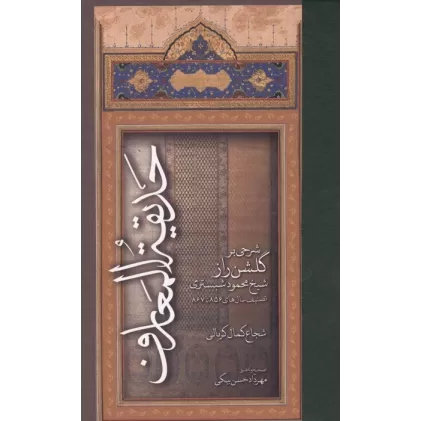 حدیقة المعارف
شرحی بر
گلشن راز
شیخ محمود شبستری
تصنیف سال‌های ۸۵۶-۸۶۷
شجاع کمال کربالی
مهرداد حسن بیگی